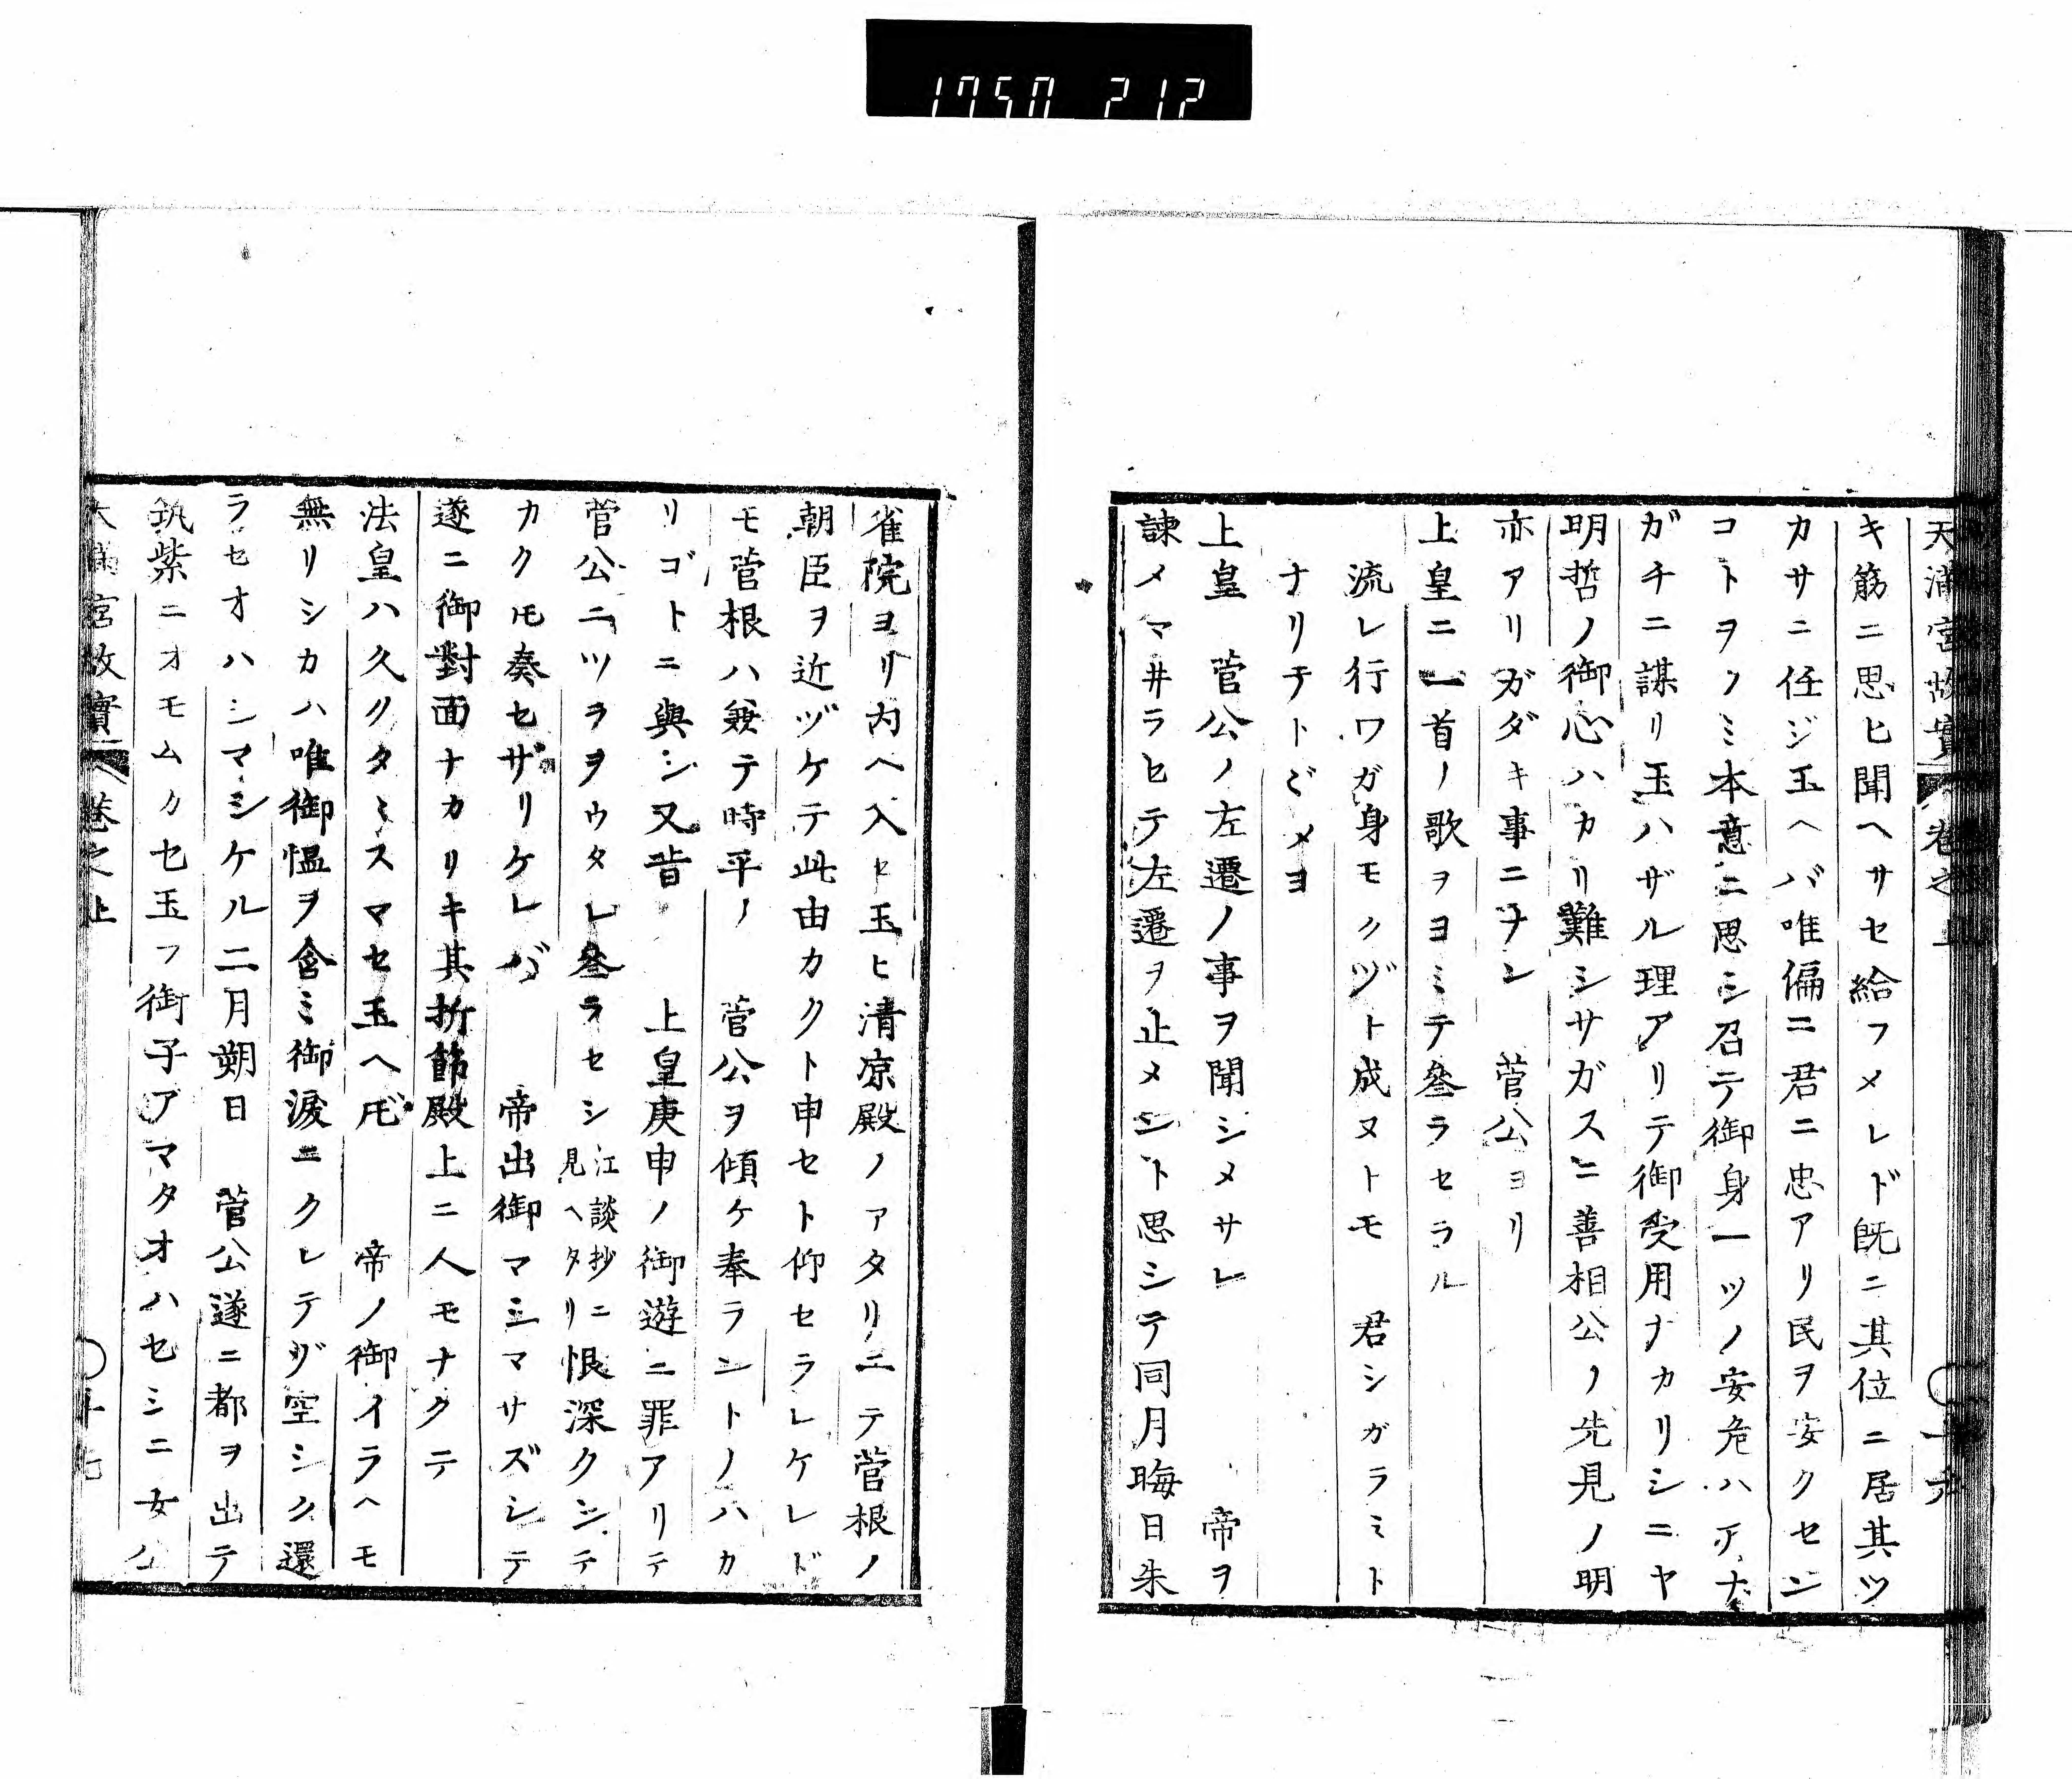 1750 212
天滿宮故實 卷之上
キ筋ニ思ヒ聞ヘサセ給フメレド旣ニ其位ニ居其ツ
カサニ任ジ玉ヘバ唯偏ニ君ニ忠アリ民ヲ安クセン
コトヲノミ本意ニ思シ召テ御身一ツノ安危ハアナ
ガチニ謀リ玉ハザル理アリテ御受用ナカリシニヤ
明哲ノ御心ハカリ難シサガスニ善相公ノ先見ノ明
亦アリガダキ事ニナン 菅公ヨリ
上皇ニ一首ノ歌ヲヨミテ叅ラセラル
流レ行ワガ身モクヅト成ヌトモ 君シガラミト
ナリテトヾメヨ
上皇 菅公ノ左遷ノ事ヲ聞シメサレ 帝ヲ
諫メマ井ラヒテ左遷ヲ止メント思シテ同月晦日朱
雀院ヨリ内ヘ入ヒ玉ヒ清凉殿ノアタリニテ菅根ノ
朝臣ヲ近ヅケテ此由カクト申セト仰セラレケレド
モ菅根ハ兼テ時平ノ 菅公ヲ傾ケ奉ラントノハカ
リゴトニ與シ又昔 上皇庚申ノ御遊ニ罪アリテ
菅公ニツラヲウタレ叅ラセシ江談抄ニ見ヘタリ恨深クンテ
カクモ奏セザリケレバ 帝出御マシマサズシテ
遂ニ御對面ナカリキ其折節殿上ニ人モナクテ
法皇ハ久クタミスマセ玉ヘ𪜈 帝ノ御イラヘモ
無リシカハ唯御慍ヲ含ミ御淚ニクレテゾ空シク還
ラセオハシマシケル二月朔日 菅公遂ニ都ヲ出テ
筑紫ニオモムカセ玉フ御子アマタオハセシニ女公
天滿宮故實 卷之上 十七